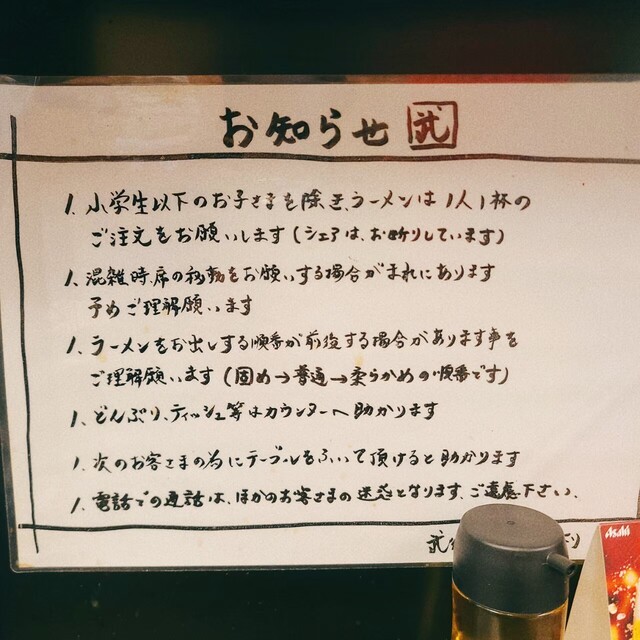 お知らせ 武
1. 小学生以下のお子さまを除き、ラーメンは1人1杯の
ご注文をお願いします(シェアは、お断りしています)
1. 混雑時、席の移動をお願いする場合がまれにあります
予めご理解願います
1. ラーメンをお出しする順番が前後する場合があります事を
ご理解願います(固め→普通→柔らかめの順番です)
1. どんぶり、ティッシュ等はカウンターへ助かります
1. 次のお客さまの為にテーブルをふいて頂けると助かります
1. 電話での通話は、ほかのお客さまの迷惑となります。ご遠慮下さい。
武
Asahi